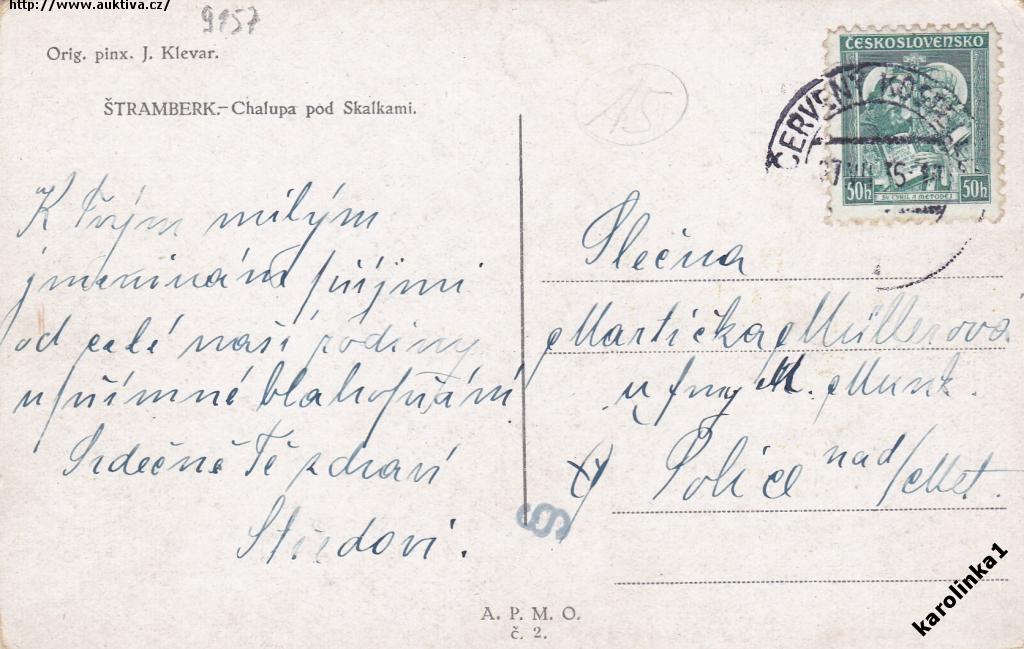 http://www.auktiva.cz/
9157
Orig. pinx. J. Klevar.
ŠTRAMBERK.-Chalupa pod Skalkami.
15
ČESKOSLOVENSKO
ČERVENÝ KOSTELEC
50h 50h
SV. CYRIL A METODĚJ
K Tvým milým
jmeninám přijmi
od celé naší rodiny
upřímné blahopřání
Srdečně Tě zdraví
Slečna
Martička Müllerová
u fmy M. Munk.
Police nad/Met.
S
A. P. M. O.
č. 2.
karolinka1